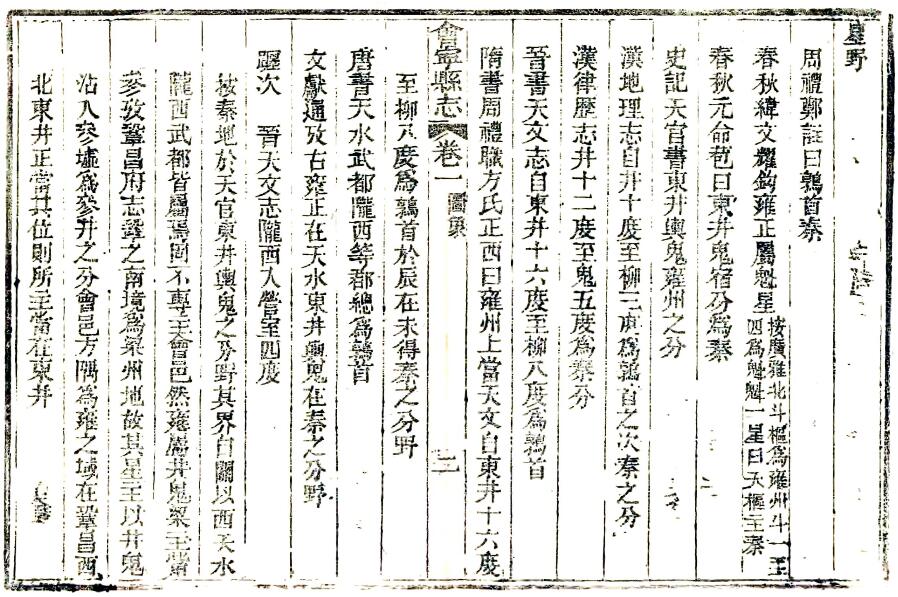 星野
周禮鄭註曰鶉首秦
春秋緯文耀鉤雍正屬魁星按廣雅北斗樞爲雍州斗一至四爲魁魁一星曰天樞主秦
春秋元命苞曰東井鬼宿分爲秦
史記天官書東井輿鬼雍州之分
漢地理志自井十度至柳三度爲鶉首之次秦之分
漢律歷志井十二度至鬼五度爲秦分
晉書天文志自東井十六度至柳八度爲鶉首
隋書周禮職方氏正西曰雍州上當天文自東井十六度
會寧縣志 卷一 圖象 二
至柳八度爲鶉首於辰在未得秦之分野
唐書天水武都隴西等郡總爲鶉首
文獻通攷古雍正在天水東井輿鬼在秦之分野
躔次 晉天文志隴西入營室四度
按秦地於天官東井輿鬼之分野其界自關以西天水
隴西武都皆屬焉固不專主會邑然雍屬井鬼梁主觜
參攷鞏昌府志鞏之南境爲梁州地故其星主以井鬼
沾入參墟爲參井之分會邑方隅爲雍之域在鞏昌西
北東井正當其位則所主當在東井